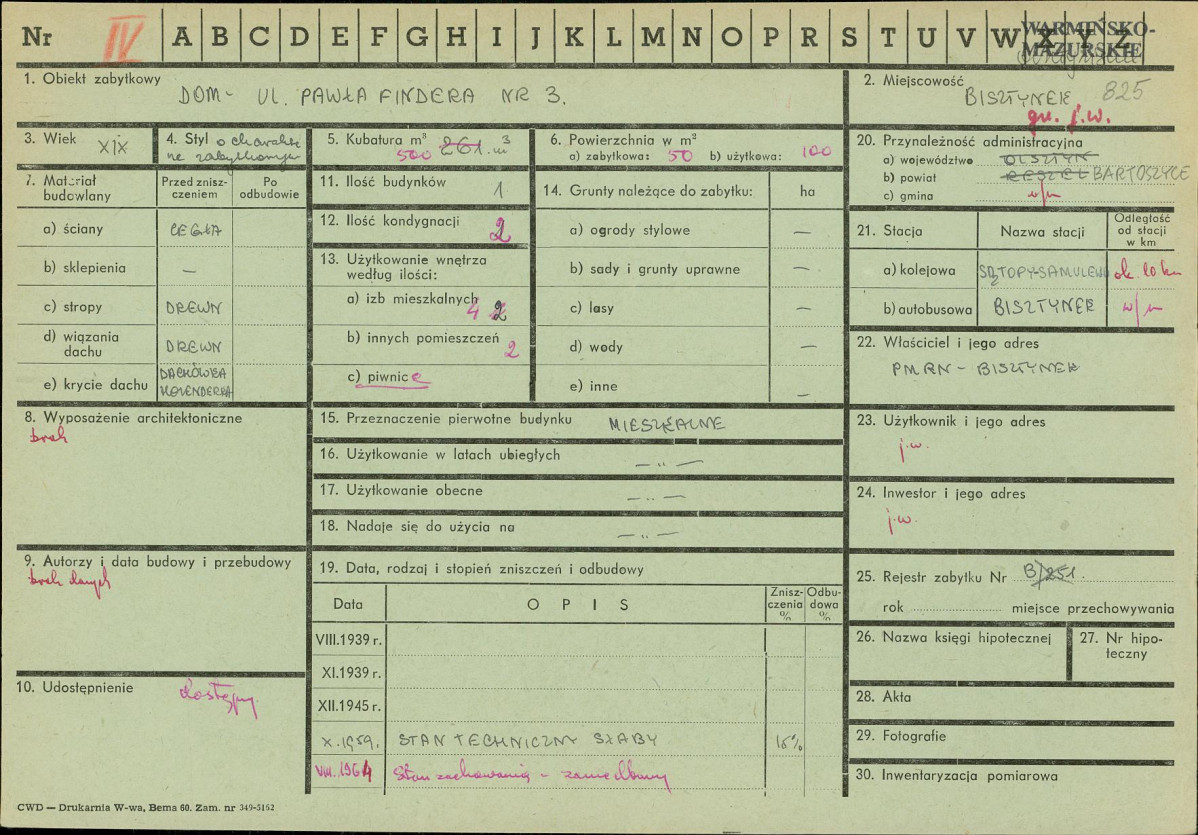 Nr IV A B C D E F G H I J K L M N O P R S T U V W X Y Z
WARMIŃSKO-
MAZURSKIE
1. Obiekt zabytkowy
DOM - UL. PAWŁA FINDERA NR 3.
2. Miejscowość
BISZTYNEK 825
gm. j.w.
3. Wiek XIX
4. Styl o charakte
rze zabytkowym
5. Kubatura m³
500 261 m³
6. Powierzchnia w m²
a) zabytkowa: 50 b) użytkowa: 100
20. Przynależność administracyjna
a) województwo OLSZTYN
b) powiat RESZEL BARTOSZYCE
c) gmina w/m
7. Materiał
budowlany
Przed znisz-
czeniem
Po
odbudowie
a) ściany CEGŁA
b) sklepienia —
c) stropy DREWN
d) wiązania
dachu DREWN
e) krycie dachu DACHÓWKA
HOLENDERKA
11. Ilość budynków 1
12. Ilość kondygnacji 2
13. Użytkowanie wnętrza
według ilości:
a) izb mieszkalnych 4 2
b) innych pomieszczeń 2
c) piwnice
14. Grunty należące do zabytku: ha
a) ogrody stylowe —
b) sady i grunty uprawne —
c) lasy —
d) wody —
e) inne —
21. Stacja Nazwa stacji
Odległość
od stacji
w km
a) kolejowa SĄTOPY-SAMULEWO ok. 10 km
b) autobusowa BISZTYNEK w/m
22. Właściciel i jego adres
PMRN - BISZTYNEK
8. Wyposażenie architektoniczne
brak
15. Przeznaczenie pierwotne budynku MIESZKALNE
16. Użytkowanie w latach ubiegłych — „ —
17. Użytkowanie obecne — „ —
18. Nadaje się do użycia na — „ —
23. Użytkownik i jego adres
j.w.
24. Inwestor i jego adres
j.w.
9. Autorzy i data budowy i przebudowy
brak danych
19. Data, rodzaj i stopień zniszczeń i odbudowy
Data OPIS
Znisz-
czenia
%
Odbu-
dowa
%
VIII.1939 r.
XI.1939 r.
XII.1945 r.
X.1959. STAN TECHNICZNY SŁABY 15%
VIII.1964 Stan zachowania - zaniedbany
10. Udostępnienie dostępny
25. Rejestr zabytku Nr B/251.
rok miejsce przechowywania
26. Nazwa księgi hipotecznej
27. Nr hipo-
teczny
28. Akta
29. Fotografie
30. Inwentaryzacja pomiarowa
CWD — Drukarnia W-wa, Bema 60. Zam. nr 349-5162